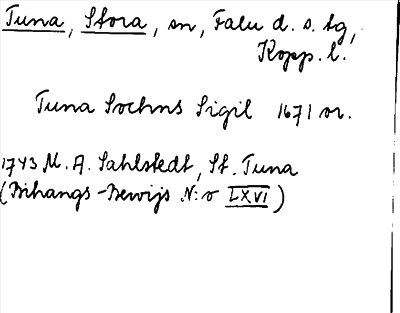 Tuna, Stora, sn, Falu d. s. tg,
Kopp. l.
Tuna Sochns Sigil 1671 or.
1743 M. A. Sahlstedt, St. Tuna
(Bihangs-Bewijs N:o LXVI)